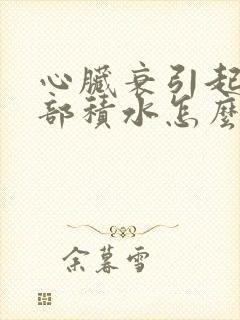 心臟衰引起
部積水怎麼
余暮雪